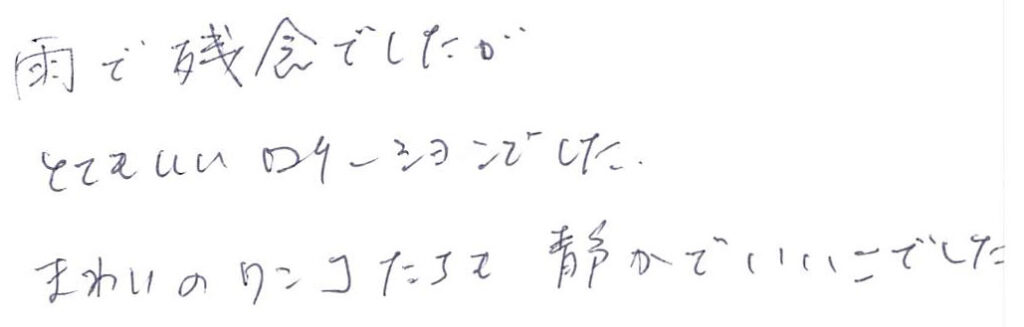 雨で残念でしたが
とてもいいロケーションでした.
まわりのワンコたちも 静かでいいこでした